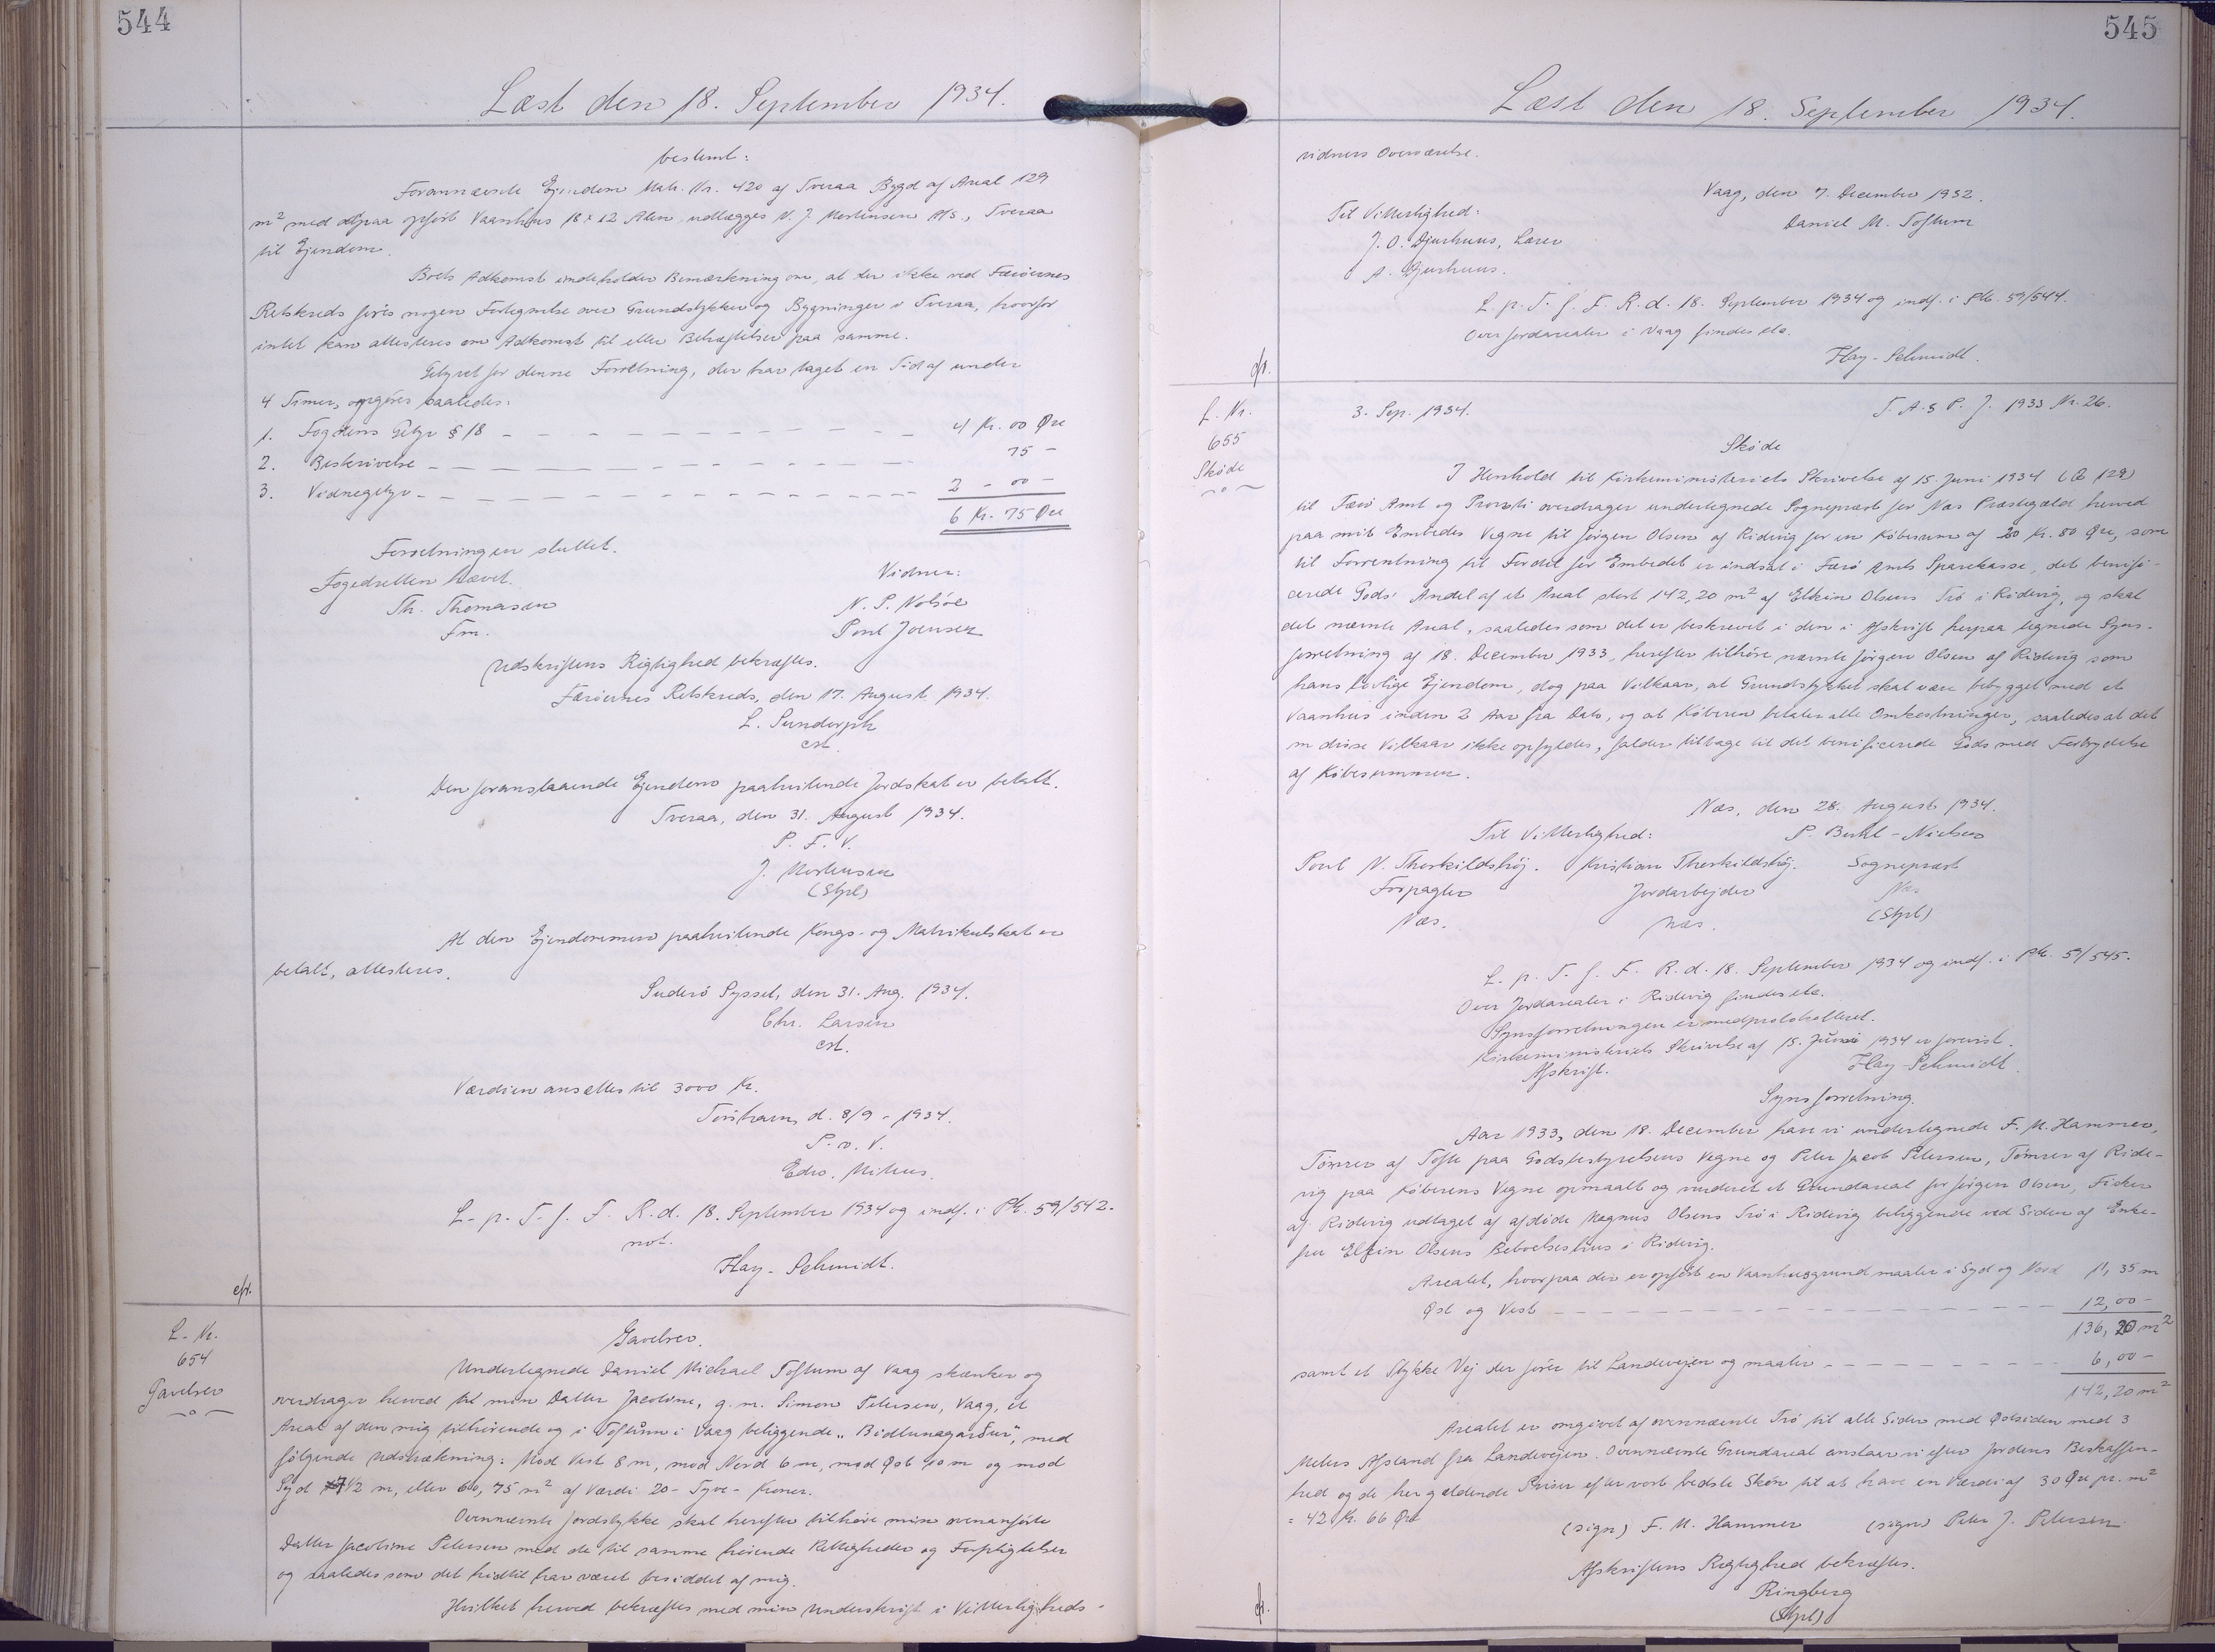 544
Læst den 18. September 1934.
bestemt:
Forannævnte Ejendom Matr. Nr. 420 af Tveraa Bygd af Areal 129
m² med derpaa opført Vaanhus 18 x 12 Alen udlægges N. J. Mortensen A/S., Tveraa
til Ejendom.
Boets Adkomst indeholder Bemærkning om, at der ikke ved Færøernes
Retskreds føres nogen Fortegnelse over Grundstykker og Bygninger i Tveraa, hvorfor
intet kan attesteres om Adkomst til eller Behæftelser paa samme.
Gebyret for denne Forretning, der har taget en Tid af under
4 Timer, opgøres saaledes:
1. Fogdens Gebyr § 18 — 4 Kr. 00 Øre
2. Beskrivelse — 75 —
3. Vidnegebyr — 2 - 00 -
6 Kr. 75 Øre
Forretningen sluttet.
Fogedretten hævet.
Vidner:
Th. Thomassen
N. P. Nolsøe
Fm.
Poul Joensen
Udskriftens Rigtighed bekræftes.
Færøernes Retskreds, den 17. August 1934.
L. Sundorph
cst.
Den foranstaaende Ejendom paahvilende Jordskat er betalt.
Tveraa, den 31. August 1934.
P. F. V.
J. Mortensen
(Stpl)
At den Ejendommen paahvilende Kongs- og Matrikulskat er
betalt, attesteres.
Suderø Syssel, den 31. Aug. 1934.
Chr. Larsen
cst.
Værdien ansættes til 3000 Kr.
Torshavn, d. 8/9 - 1934.
P. v. V.
Edw. Mitens.
L. p. T. f. F. R. d. 18. September 1934 og indf. i Ptk. 59/542.
not.
Hay-Schmidt.
cft.
L. Nr.
654
Gavebrev
Gavebrev.
Undertegnede Daniel Michael Toftum af Vaag skænker og
overdrager herved til min Datter Jacobine, g. m. Simon Petersen, Vaag, et
Areal af den mig tilhørende og i Toftunn i Vaag beliggende "Bidlunagarður", med
følgende Udstrækning: Mod Vest 8 m, mod Nord 6 m, mod Øst 10 m og mod
Syd 7 1/2 m, eller 60,75 m² af Værdi 20 - Tyve - Kroner.
Ovennævnte Jordstykke skal herefter tilhøre min ovenanførte
Datter Jacobine Petersen med de til samme hørende Rettigheder og Forpligtelser
og saaledes som det hidtil har været besiddet af mig.
Hvilket herved bekræftes med min Underskrift i Vitterligheds-
545
Læst den 18. September 1934.
vidners Overværelse.
Vaag, den 7. December 1932.
Til Vitterlighed:
Daniel M. Toftum
J. O. Djurhuus, Lærer
A. Djurhuus.
L. p. T. f. F. R. d. 18. September 1934 og indf. i Ptk. 59/544.
Over Jordarealer i Vaag findes etc.
Hay-Schmidt.
cft.
L. Nr.
655
Skøde
3. Sep. 1934.
T. A. & P. J. 1933 Nr. 26.
Skøde
I Henhold til Kirkeministeriets Skrivelse af 15. Juni 1934 (Q 129)
til Færø Amt og Provsti overdrager undertegnede Sognepræst for Næs Præstegæld herved
paa mit Embedes Vegne til Jørgen Olsen af Ridevig for en Købesum af 20 Kr. 80 Øre, som
til Forrentning til Fordel for Embedet er indsat i Færø Amts Sparekasse, det benifi-
cerede Gods' Andel af et Areal stort 142,20 m² af Elkin Olsens Trø i Ridevig, og skal
det nævnte Areal, saaledes som det er beskrevet i den i Afskrift herpaa tegnede Syns-
forretning af 18. December 1933, herefter tilhøre nævnte Jørgen Olsen af Ridevig som
hans lovlige Ejendom, dog paa Vilkaar, at Grundstykket skal være bebygget med et
Vaanhus inden 2 Aar fra Dato, og at Køberen betaler alle Omkostninger, saaledes at det
m disse Vilkaar ikke opfyldes, falder tilbage til det benificerede Gods med Forbrydelse
af Købesummen.
Næs, den 28. August 1934.
Til Vitterlighed:
P. Buhl-Nielsen
Poul N. Therkildshøj. Kristian Therkildshøj. Sognepræst
Jordarbejder Næs
Næs. Næs. (Stpl)
L. p. T. f. F. R. d. 18. September 1934 og indf. i Ptk. 59/545.
Over Jordarealer i Ridevig findes etc.
Synsforretningen er medprotokolleret.
Kirkeministeriets Skrivelse af 15. Juni 1934 er forevist.
Afskrift. Hay-Schmidt.
Synsforretning.
Aar 1933, den 18. December have vi undertegnede F. M. Hammer,
Tømrer af Tofte paa Godsbestyrelsens Vegne og Peter Jacob Petersen, Tømrer af Ride-
vig paa Køberens Vegne opmaalt og vurderet et Grundareal for Jørgen Olsen, Fisker
af Ridevig udtaget af afdøde Magnus Olsens Trø i Ridevig beliggende ved Siden af Enke-
fru Elkin Olsens Beboelseshus i Ridevig.
Arealet, hvorpaa der er opført en Vaanhusgrund maaler i Syd og Nord 11,35 m
Øst og Vest — 12,00 -
136,20 m²
samt et Stykke Vej der fører til Landevejen og maaler — 6,00 -
142,20 m²
Arealet er omgivet af ovennævnte Trø til alle Sider med Østsiden med 3
Meters Afstand fra Landevejen. Ovennævnte Grundareal anslaar vi efter Jordens Beskaffen-
hed og de her gældende Priser efter vort bedste Skøn til at have en Værdi af 30 Øre pr. m²
= 42 Kr. 66 Øre
(sign) F. M. Hammer (sign) Peter J. Petersen
Afskriftens Rigtighed bekræftes.
Ringberg
(Stpl)
cft.